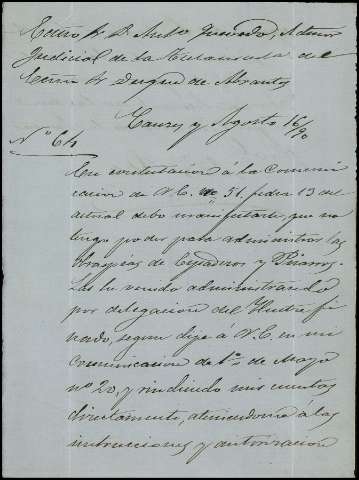 Excmo Sr D. Anto Quevedo, Admor
Judicial de la Testamentía del
Excmo Sr Duque de Abrantes
Caures y Agosto 16/90
Nº 64
En contestación á la Comuni
cación de V.E. nº 51 fecha 13 del
actual debo manifestarle, que no
tengo poder para administrar las
obrapias de
y
Las he venido administrando
por delegacion del Ilustre fi
nado, segun dije á V.E. en mi
Comunicación de 1º de Mayo
nº 20, y rindiendo mis cuentas
directamente, ateniendome á las
instrucciones y autorizacion